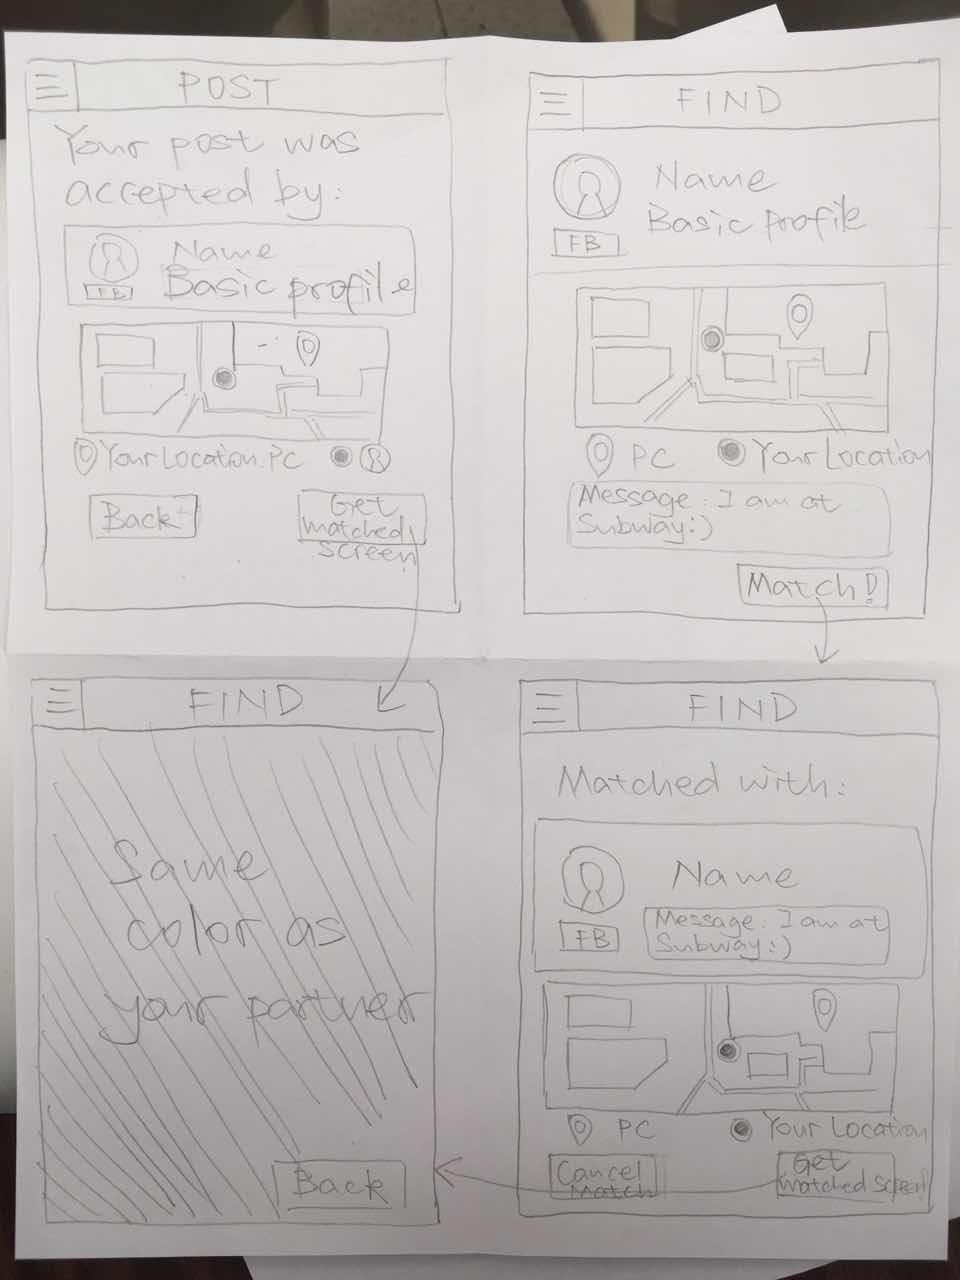 POST
Your post was
accepted by:
Name
FB
Basic profile
Your Location. PC
Back
Get
matched
screen
FIND
Name
Basic Profile
FB
PC
Your Location
Message: I am at
Subway:)
Match!
FIND
Same
color as
your partner
Back
FIND
Matched with:
Name
FB
Message: I am at
Subway:)
PC
Your Location
Cancel
Match
Get
Matched Screen